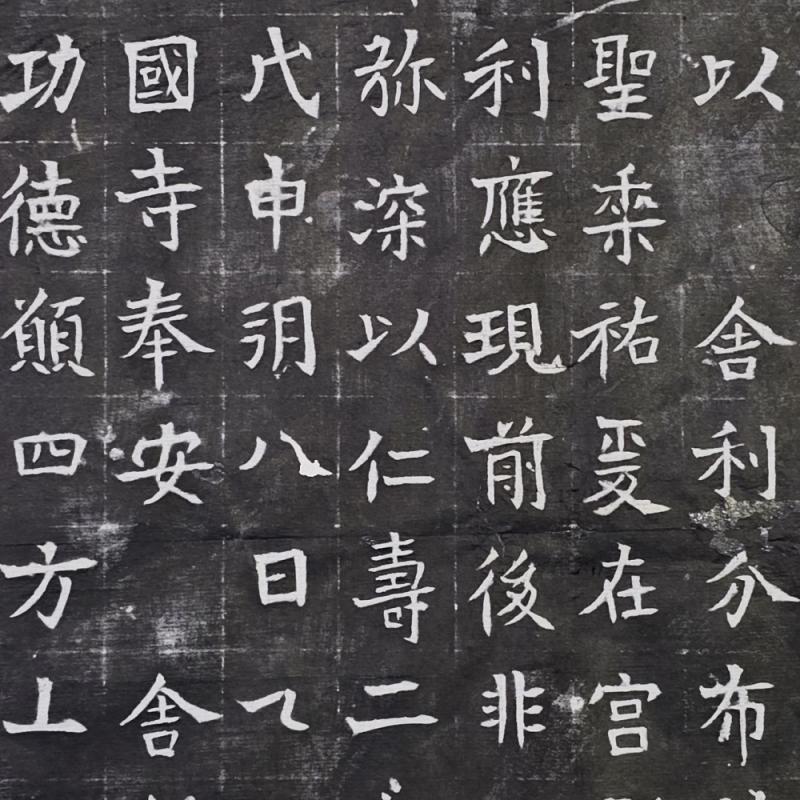 以　舍利分布
聖垂祐爰在宮
利應現前後非
弥深以仁壽二
戊申朔八日乙
國寺奉安　舍
功德願四方上